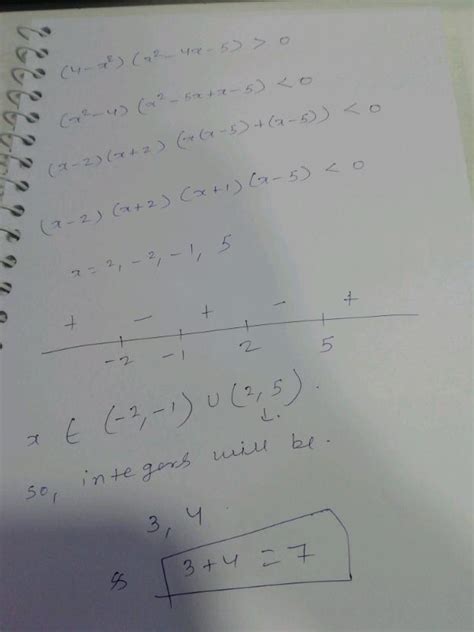 (4-x²) (x²-4x-5) > 0
(x²-4) (x²-5x+x-5) < 0
(x-2)(x+2) (x(x-5)+(x-5)) < 0
(x-2) (x+2) (x+1) (x-5) < 0
x = 2, -2, -1, 5
+ - + - +
-2 -1 2 5
x ∈ (-2,-1) ∪ (2,5).
↓.
so, integers will be.
3, 4.
3+4 = 7